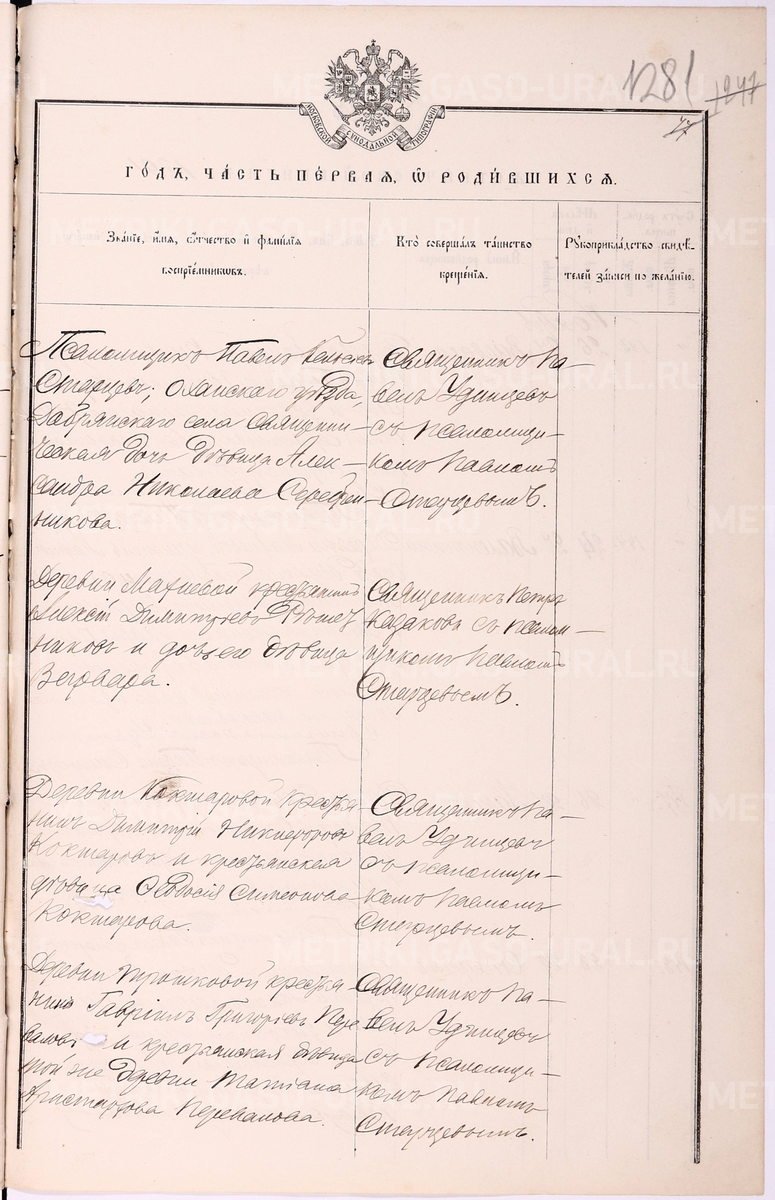 1281 1247
27
МОСКОВСКОЙ СѴНОДАЛЬНОЙ ТИПОГРАФІИ
ГО́ДЪ, ЧА́СТЬ ПЕ́РВАЯ, Ѡ РОДИ́ВШИХСЯ.
Зва́нїе, и́мя, о́тчество и҆ фами́лїя
воспрїе́мниковъ.
Кто̀ соверша́лъ та́инство
креще́нїя.
Рꙋкоприкла́дство свидѣ́-
телей за́писи по жела́нїю.
Псаломщикъ Павелъ
Старцевъ; Оханскаго уѣзда,
Дабрянскаго села Священни-
ческая дочь дѣвица Алек-
сандра Николаева Серебрен-
никова.
Священникъ Па-
велъ Удинцевъ
съ псаломщи-
комъ Павломъ
Старцевымъ.
Деревни крестьянинъ
Алексѣй Димитріевъ
и дочь его дѣвица
Варвара.
Священникъ Петръ
Казаковъ съ псалом-
щикомъ Павломъ
Старцевымъ.
Деревни Кокшаровой крестья-
нинъ Димитрій Никифоровъ
Кокшаровъ и крестьянская
дѣвица Ѳеодосія Симеонова
Кокшарова.
Священникъ Па-
велъ Удинцевъ
съ псаломщи-
комъ Павломъ
Старцевымъ.
Деревни Трошковой крестья-
нинъ Гавріилъ Григорьевъ Пере
валовъ и крестьянская дѣвица
той же деревни Татіана
Аристархова Перевалова.
Священникъ Па-
велъ Удинцевъ
съ псаломщи-
комъ Павломъ
Старцевымъ.